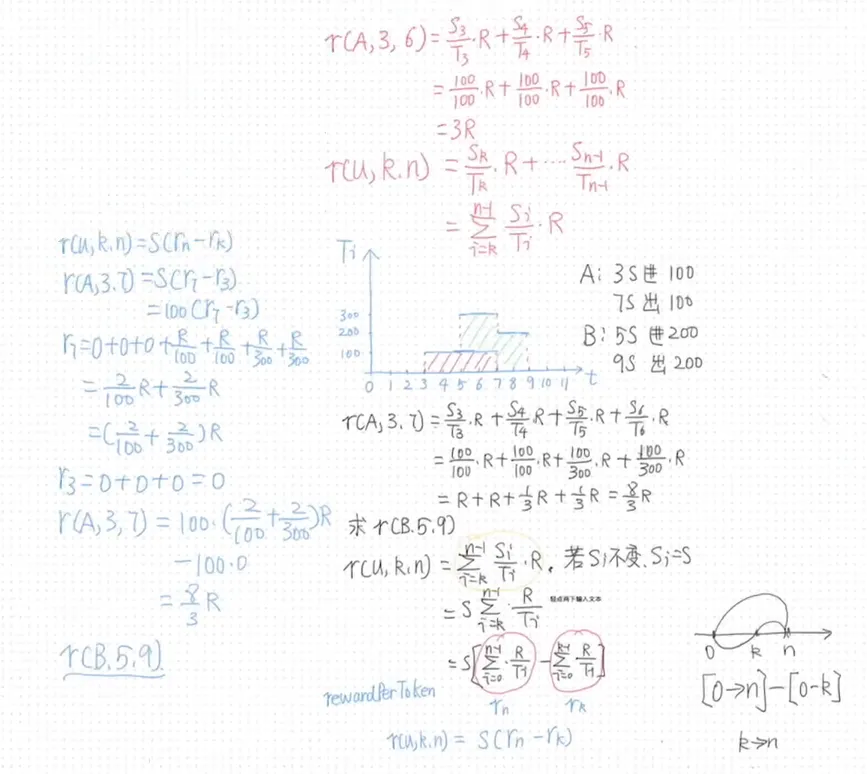 r(A,3,6)=S₃/T₃·R+S₄/T₄·R+S₅/T₅·R
=100/100·R+100/100·R+100/100·R
=3R
r(u,k.n)=Sₖ/Tₖ.R+····Sₙ₋₁/Tₙ₋₁·R
=∑_{i=k}^{n-1} Sᵢ/Tᵢ·R
r(u,k.n)=S(rₙ-rₖ)
r(A,3.7)=S(r₇-r₃)
=100(r₇-r₃)
r₇=0+0+0+R/100+R/100+R/300+R/300
=2/100R+2/300R
=(2/100+2/300)R
r₃=0+0+0=0
r(A,3,7)=100·(2/100+2/300)R
-100·0
=8/3R
r(B.5.9)
Tᵢ
300
200
100
0 1 2 3 4 5 6 7 8 9 10 11 t
A: 3S进100
7S出100
B: 5S进200
9S出200
r(A,3,7)=S₃/T₃·R+S₄/T₄R+S₅/T₅·R+S₆/T₆·R
=100/100·R+100/100·R+100/300·R+100/300·R
=R+R+1/3R+1/3R=8/3R
求r(B.5.9)
r(u,k.n)=∑_{i=k}^{n-1} Sᵢ/Tᵢ·R. 若Sᵢ不变、Sᵢ=S
=S∑_{i=k}^{n-1}·R/Tᵢ
轻点两下输入文本
=S[∑_{i=0}^{n-1}·R/Tᵢ-∑_{i=0}^{k-1} R/Tᵢ]
rewardPerToken
rₙ rₖ
r(u,k.n)=S(rₙ-rₖ)
0 k n
[0→n]-[0-k]
k→n